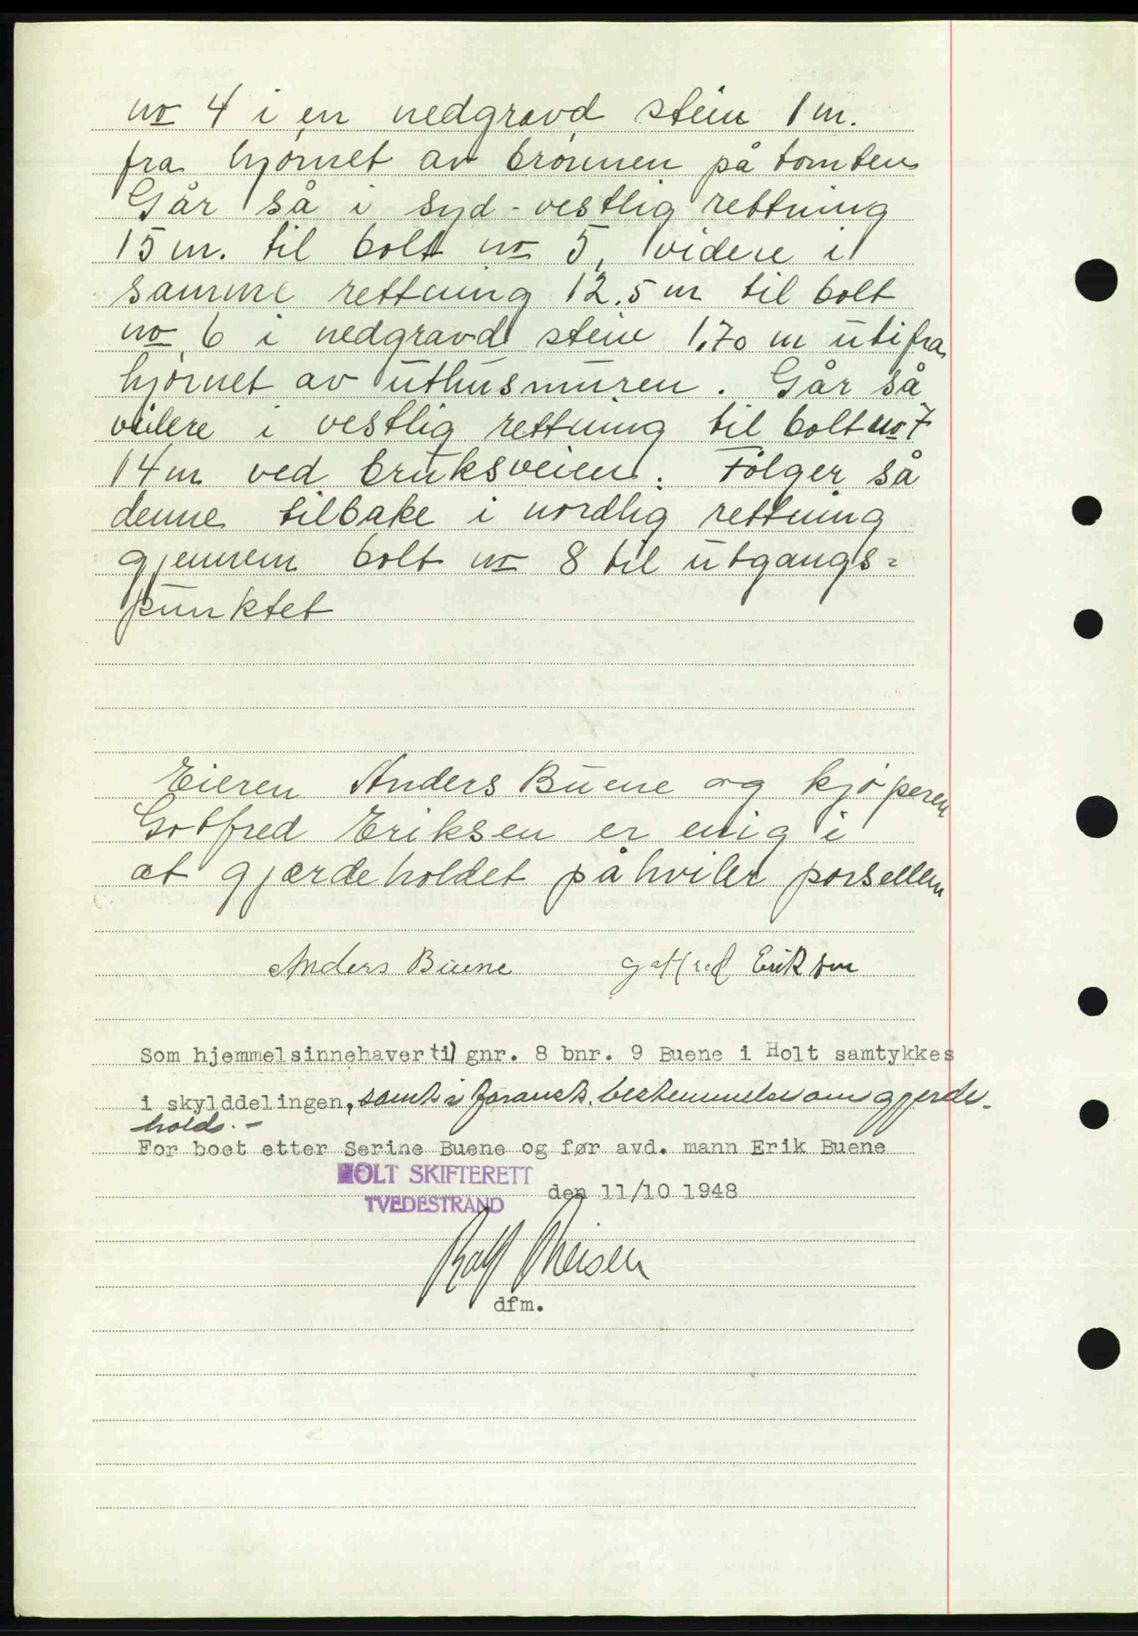 no 4 i en nedgravd stein 1 m.
fra hjørnet av brønnen på tomten
Går så i syd-vestlig rettning
15 m. til bolt no 5, videre i
samme rettning 12.5 m til bolt
no 6 i nedgravd stein 1,70 m ut ifra
hjørnet av uthusmuren. Går så
videre i vestlig rettning til bolt no 7
14 m ved bruksveien. Følger så
denne tilbake i nordlig rettning
gjennem bolt no 8 til utgangs=
punktet
Eieren Anders Buene og kjøperen
Gotfred Eriksen er enig i
at gjærdeholdet påhviler parsellen
Anders Buene Gotfred Eriksen
Som hjemmelsinnehaver til gnr. 8 bnr. 9 Buene i Holt samtykkes
i skylddelingen, samt i foranst. bestemmelse om gjerde-
hold. -
For boet etter Serine Buene og før avd. mann Erik Buene
HOLT SKIFTERETT
TVEDESTRAND
den 11/10 1948
dfm.